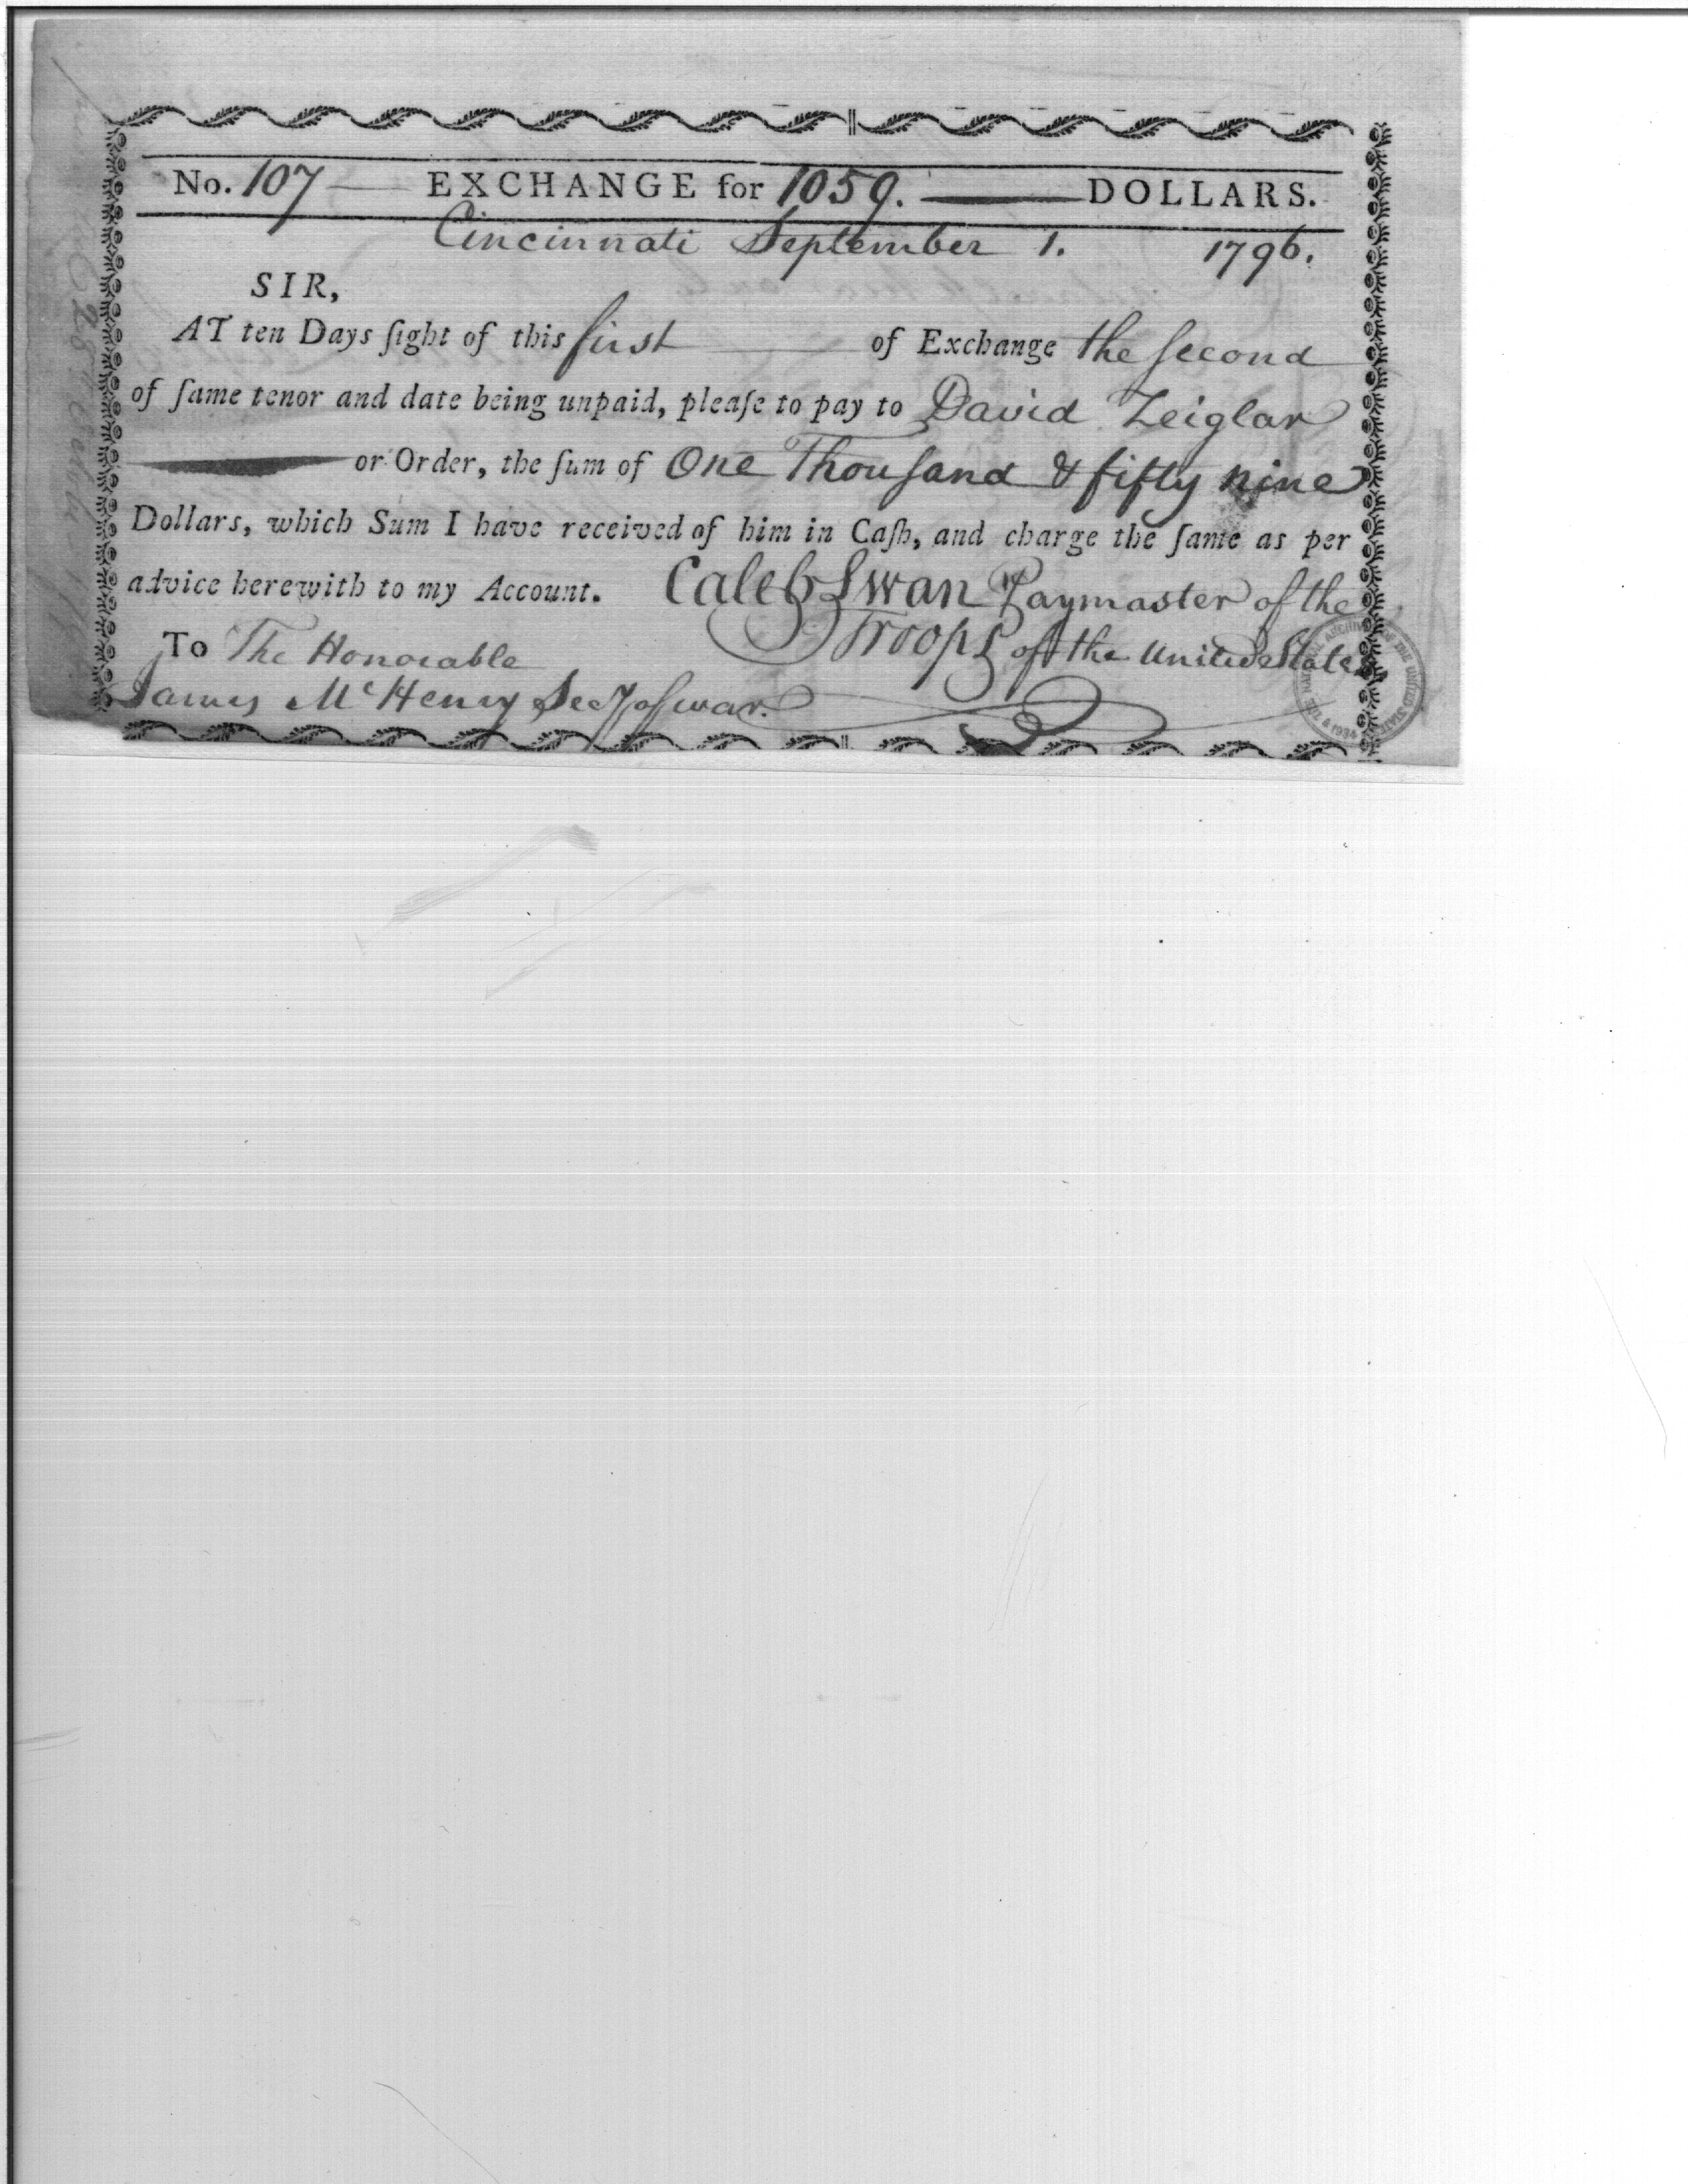 No. 107 — EXCHANGE for 1059. — DOLLARS.
Cincinnati September 1. 1796.
SIR,
AT ten Days ſight of this first — of Exchange the ſecond
of ſame tenor and date being unpaid, pleaſe to pay to David Zeiglar
— or Order, the ſum of One Thouſand & fifty nine
Dollars, which Sum I have received of him in Caſh, and charge the ſame as per
advice herewith to my Account. Caleb Swan Paymaster of the
Troops of the United States
To The Honorable
James McHenry Secy of war.
THE NATIONAL ARCHIVES OF THE UNITED STATES 1934